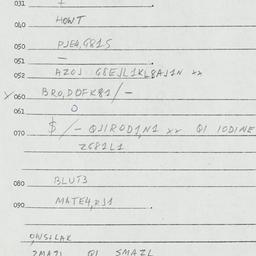 031 1
040 HOWT
050 PJE4,G815
051 —
052 AZOJ G8EJL1KL8AJ1N xx
060 BRO,DOFK81/—
061 O
070 $/— QJIROD1,N1 xx QI IODINE
Z681L1
080 BLUT3
090 MATE4,RJ1
QWSILAK
2MAZL QI SMAZL